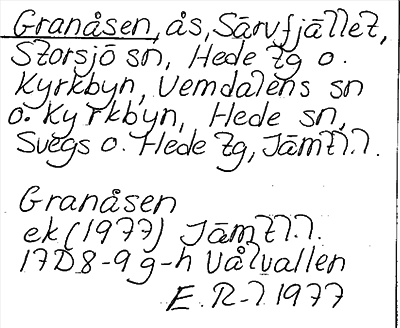 Granåsen, ås, Särvfjället,
Storsjö sn, Hede tg o.
Kyrkbyn, Vemdalens sn
o. Kyrkbyn, Hede sn,
Svegs o. Hede tg, Jämtl.l.
Granåsen
ek (1977) Jämtl.l.
17D8-9g-h Vålvallen
E. R-l 1977